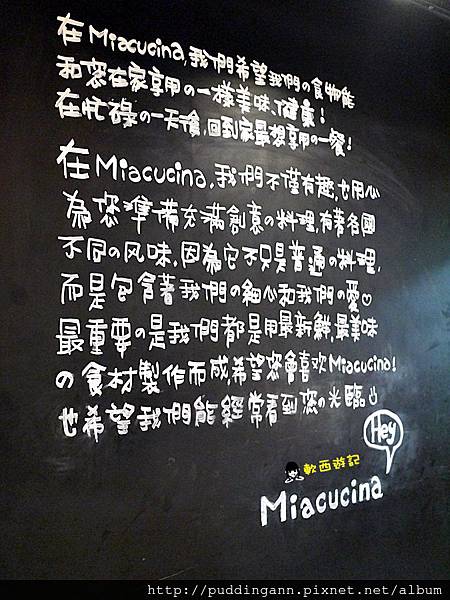 在Miacucina,我們希望我們の食物能
和您在家享用の一樣美味、健康!
在忙碌の一天後,回到家最想享用の一餐!
在Miacucina,我們不僅有趣,也用心
為您準備充滿創意の料理,有著各國
不同の风味,因為它不只是普通の料理,
而是包含著我們の細心和我們の愛♡
最重要の是我們都是用最新鮮,最美味
の食材製作而成,希望您會喜歡Miacucina!
也希望我們能經常看到您の光臨
Hey
軟西遊記
Miacucina
http://puddingann.pixnet.net/album